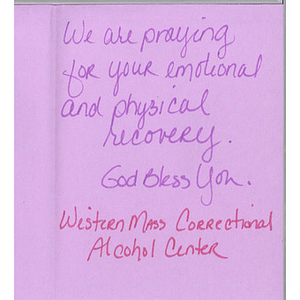 We are praying
for your emotional
and physical
recovery.
God Bless You.
Western Mass Correctional
Alcohol Center